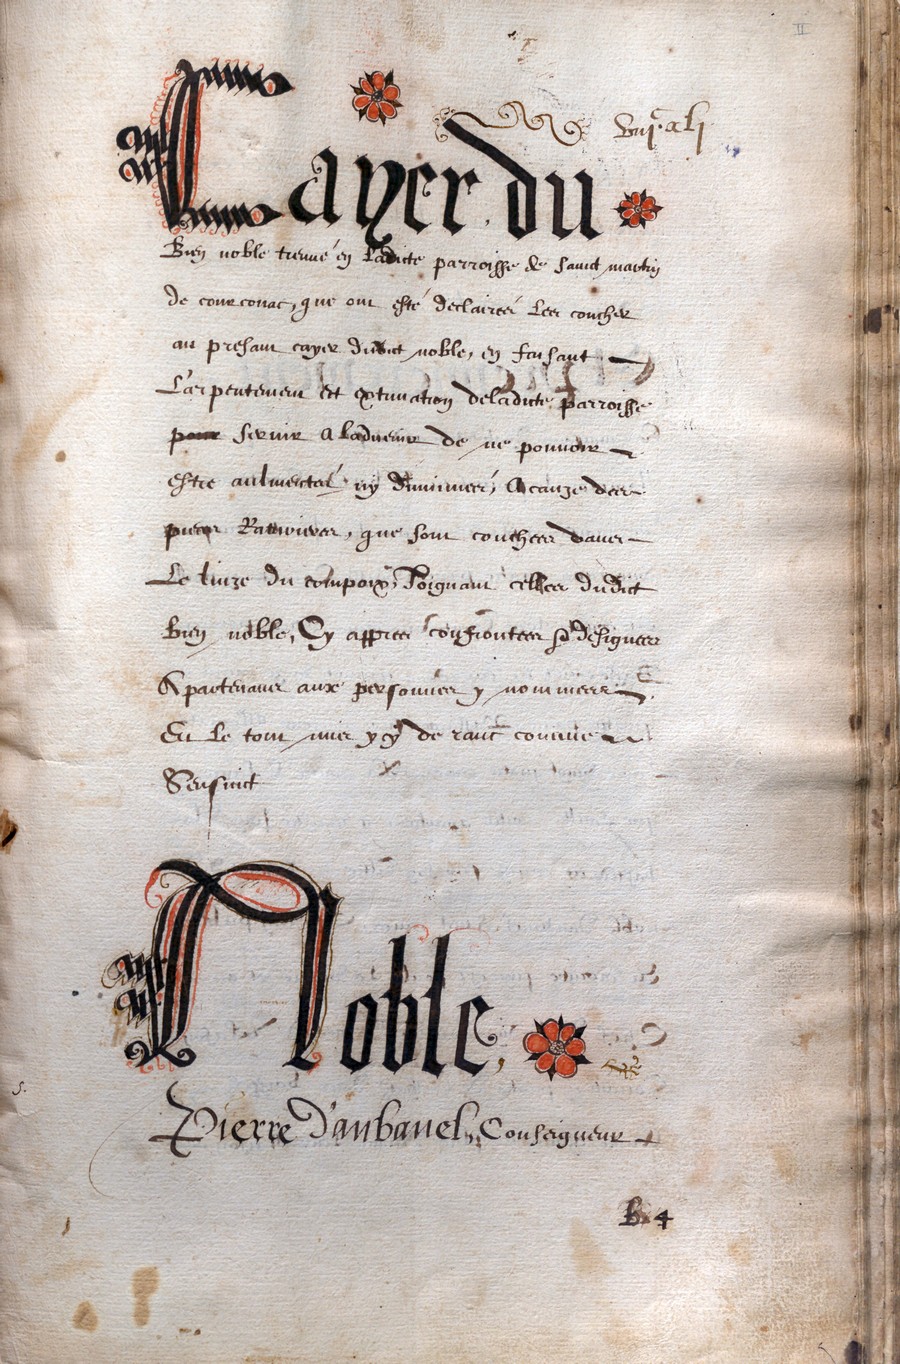 Cayer du
Bien noble treuvé en ladicte parroisse de sainct martin
de courconac, que ont esté declairés Les coucher
au presant cayer dudict noble, en faisant
L'arpentement et extimation deladicte parroisse
pour servir a ladvenir de ne pouvoir
estre aulmentés ny diminués, A cauze des
pieces, que sont couchees davec
Le livre du compoix, Joignant celles dudict
Bien noble, Cy appres confrontees & designees
Apartenans aux personnes y nommees
En le de ranc comme
Sensuict
Noble,
Pierre D'aubanel, Conseigneur
B 4